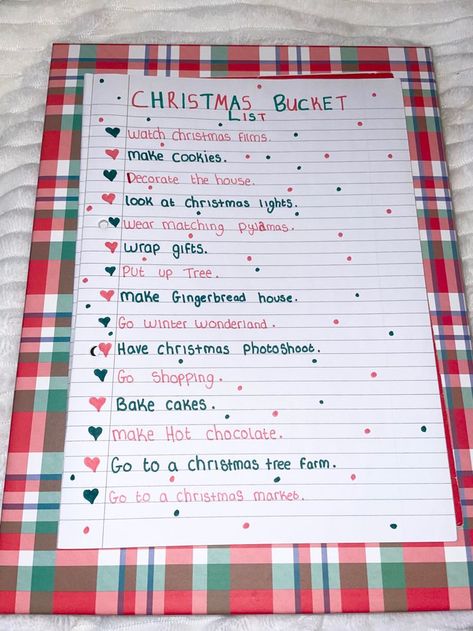 CHRISTMAS BUCKET
LIST
Watch christmas films.
make cookies.
Decorate the house.
look at christmas lights.
Wear matching pyjamas.
wrap gifts.
Put up Tree.
make Gingerbread house.
Go winter wonderland.
Have christmas photoshoot.
Go shopping.
Bake cakes.
make Hot chocolate.
Go to a christmas tree farm.
Go to a christmas market.